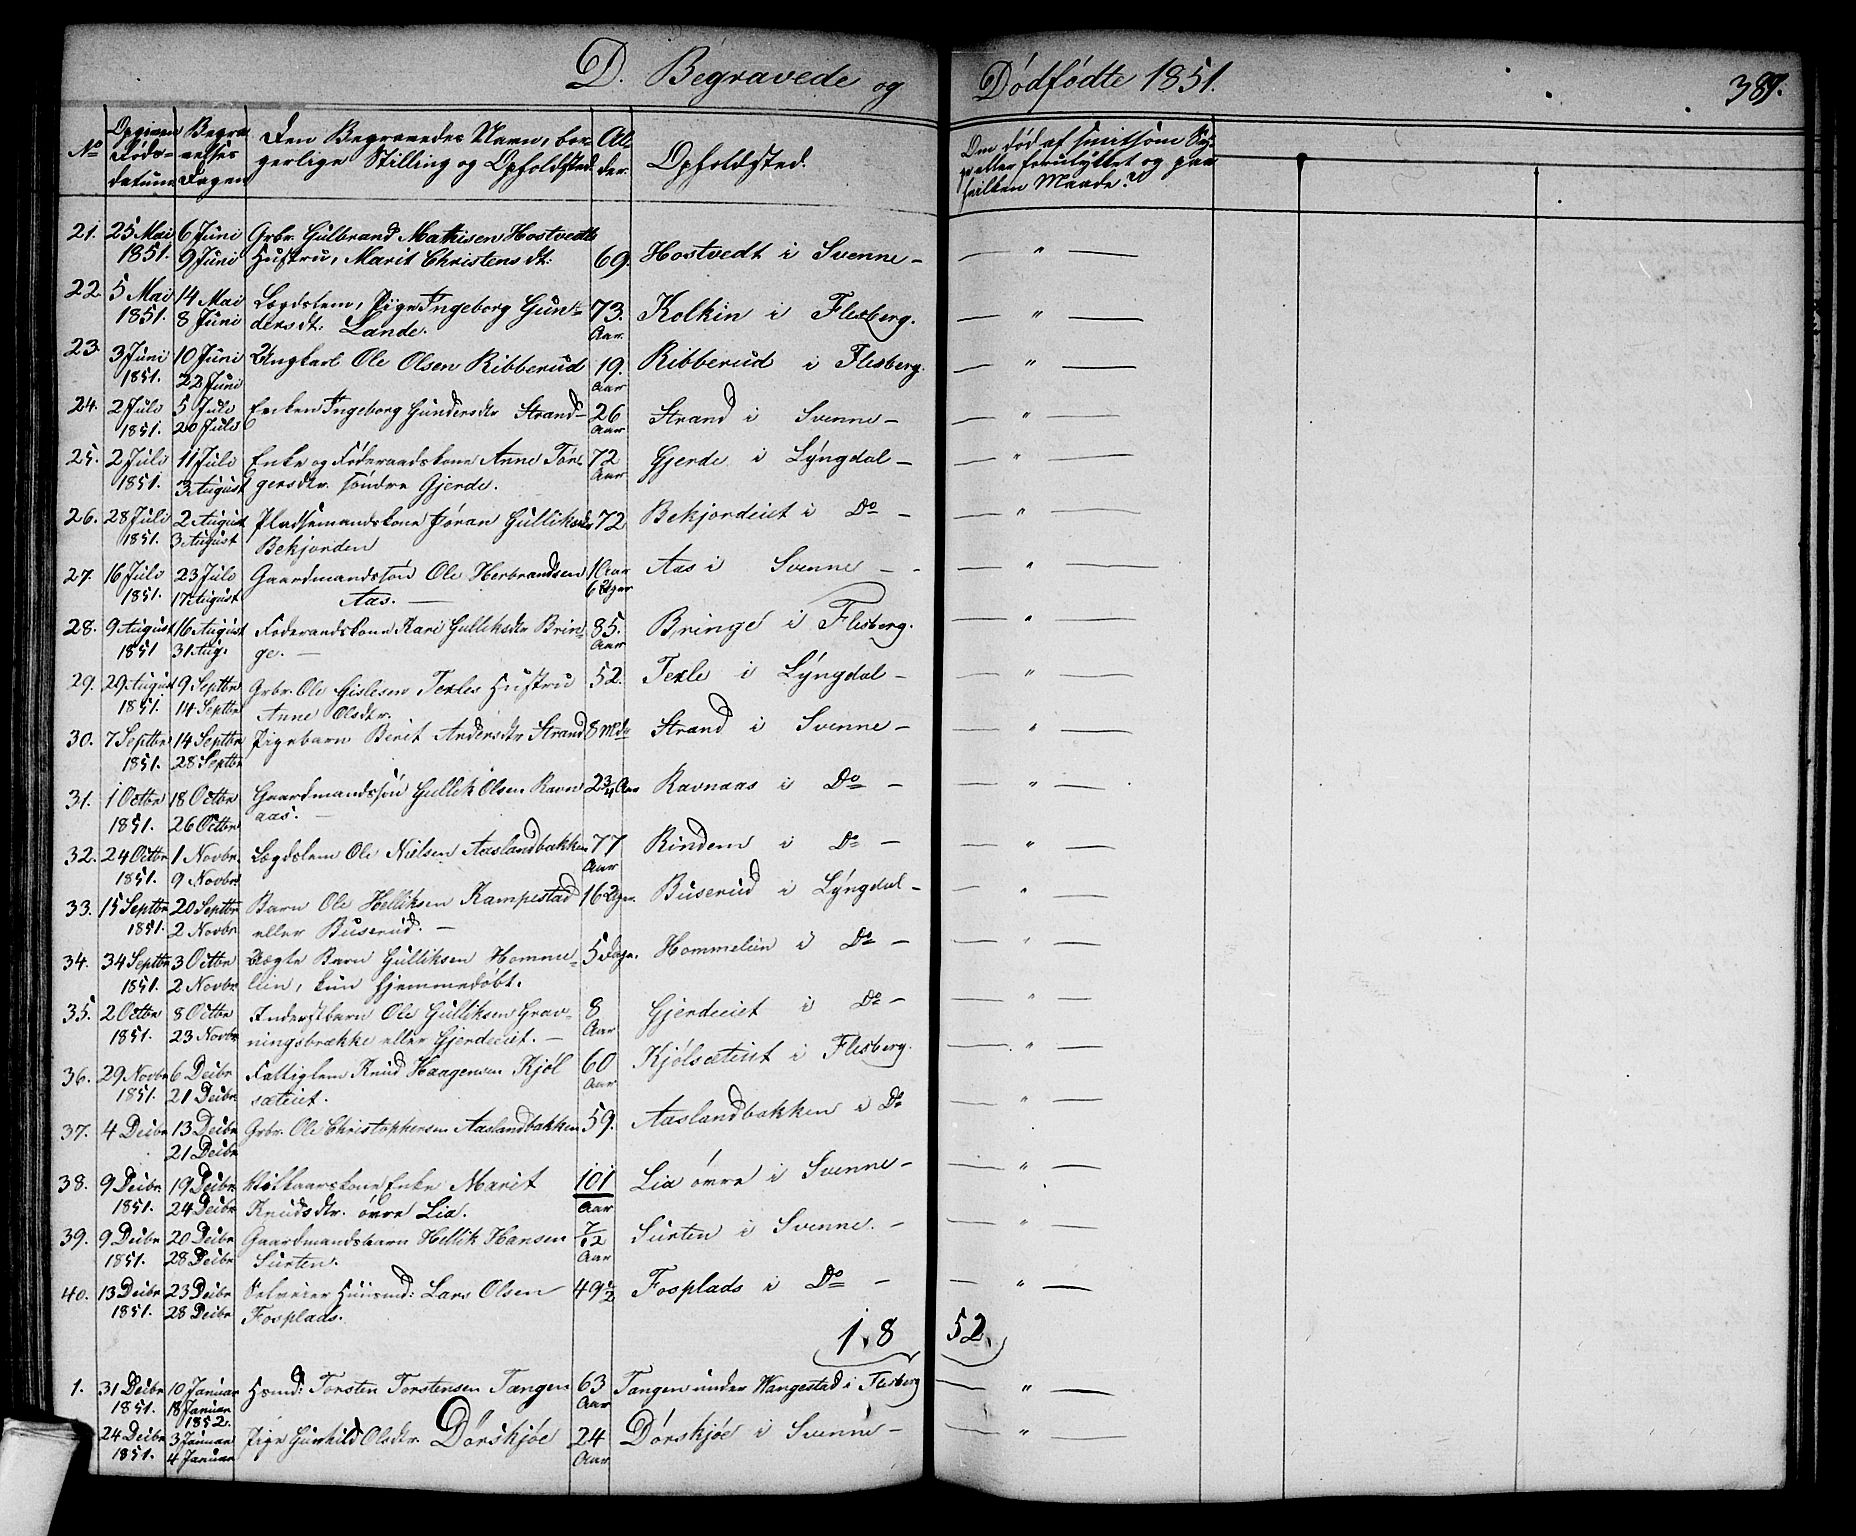 D. Begravede og Dödfödte 1851. 389.
No Opgiven Döds- datum Begra- velses Dagen Den Begravedes Navn, bor- gerlige Stilling og Opholdsted Al- der. Opholdsted. Om död af smitsom Sy- ge eller forulykket og paa hvilken Maade?
21. 25 Mai 6 Juni Grbr. Gulbrand Mathisen Hostvedts
1851. 9 Juni Hustru, Marit Christensdt: 69. Hostvedt i Svenne — " —
22. 5 Mai 14 Mai Lægdslem, Pige Ingeborg Gun- 73. Kolkin i Flesberg. — " —
1851. 8 Juni dersdt. Lande. Aar
23. 3 Juni 10 Juni Ungkarl Ole Olsen Ribberud 19. Ribberud i Flesberg. — " —
1851. 22 Juni Aar
24. 2 Juli 5 Juli Enken Ingeborg Gundersdtr Strand 26 Strand i Svenne — " —
1851. 20 Juli Aar
25. 2 Juli 11 Juli Enke og Föderaadskone Anne Tor- 72 Gjerde i Lyngdal — " —
1851. 3 August gersdtr. söndre Gjerde. Aar
26. 28 Juli 2 August Pladsemandskone Jöran Gulliksdtr 72 Bekjordeiet i Do — " —
1851. 3 August Bekjorden
27. 16 Juli 23 Juli Gaardmandssön Ole Herbrandsen 1 Aar Aas i Svenne — " —
1851. 17 August Aas. — 6 Uger
28. 9 August 16 August Föderaadskone Kari Gulliksdtr Brin- 85. Bringe i Flesberg. — " —
1851 31 Aug. ge. — Aar
29. 29 August 9 Septbr Grbr. Ole Gislesen Texles Hustru 52. Texle i Lyngdal — " —
1851. 14 Septbr Anne Olsdtr.
30. 7 Septbr 14 Septbr Pigebarn Berit Andersdtr Strand 8 Mdr Strand i Svenne — " —
1851. 28 Septbr
31. 1 Octbr 18 Octbr Gaardmandssön Gullik Olsen Ravn 2 3/4 Aar Ravnaas i Do — " —
1851. 26 Octbr aas. —
32. 24 Octbr 1 Novbr. Lægdslem Ole Nielsen Aaslandbakken 77 Rindem i Do — " —
1851. 9 Novbr Aar
33. 15 Septbr 20 Septbr Barn Ole Helliksen Kampestad 16 Uger. Buserud i Lyngdal — " —
1851. 2 Novbr eller Buserud. —
34. 34 Septbr 3 Octbr Ægte Barn Gulliksen Homme- 5 Dage. Hommelien i Do — " —
1851. 2 Novbr lien, kun hjemmedöbt.
35. 2 Octbr 8 Octbr Inderstbarn Ole Gulliksen Grav- 8 Gjerdeeiet i Do — " —
1851. 23 Novbr ningsbrække eller Gjerdeeiet. — Aar
36. 29 Novbr 6 Decbr Fattiglem Knud Haagensen Kjöl 60 Kjölsæteiet i Flesberg. — " —
1851. 21 Decbr sæteiet. Aar
37. 4 Decbr 13 Decbr Grbr. Ole Christophersen Aaslandbakken 59. Aaslandbakken i Do — " —
21 Decbr
38. 9 Decbr 19 Decbr Vilkaarskone Enke Marit 101 Lia övre i Svenne — " —
1851. 24 Decbr Knudsdtr. övre Lia. Aar
39. 9 Decbr 20 Decbr Gaardmandsbarn Hellik Hansen 7/12 Surten i Svenne. — " —
1851. 28 Decbr Surten. Aar
40. 13 Decbr 23 Decbr Selveier Huusmd: Lars Olsen 49 1/2 Fosplads i Do — " —
1851. 28 Decbr Fosplads.
18 52.
1. 31 Decbr 10 Januar Hsmd: Torsten Torstensen Tangen 63 Tangen under Wangestad i Flesberg — " —
1851. 18 Januar 1852. Aar
24 Decbr 3 Januar Pige Gunhild Olsdtr. Dörskjöe 24 Dörskjöe i Svenne — " —
1851. 4 Januar Aar